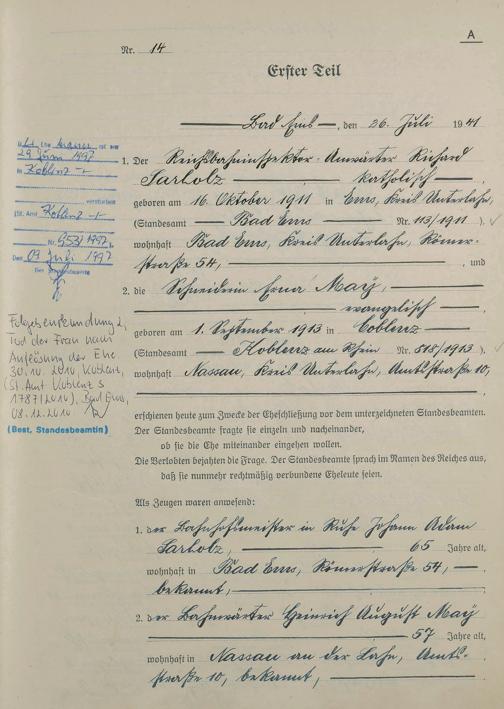 A
Nr. 14
Erster Teil
Bad Ems, den 26. Juli 1941
1. Der Reichsbahninspektor-Anwärter Richard
Sarholz, katholisch
geboren am 16. Oktober 1911 in Ems, Kreis Unterlahn,
(Standesamt Bad Ems Nr. 113/1911)
wohnhaft Bad Ems, Kreis Unterlahn, Römer-
straße 54, und
2. die Schneiderin Erna May,
evangelisch
geboren am 1. September 1913 in Coblenz
(Standesamt Koblenz am Rhein Nr. 518/1913)
wohnhaft Nassau, Kreis Unterlahn, Amtsstraße 10,
erschienen heute zum Zwecke der Eheschließung vor dem unterzeichneten Standesbeamten.
Der Standesbeamte fragte sie einzeln und nacheinander,
ob sie die Ehe miteinander eingehen wollen.
Die Verlobten bejahten die Frage. Der Standesbeamte sprach im Namen des Reiches aus,
daß sie nunmehr rechtmäßig verbundene Eheleute seien.
Als Zeugen waren anwesend:
1. der Bahnhofsmeister in Ruhe Johann Adam
Sarholz, 65 Jahre alt,
wohnhaft in Bad Ems, Römerstraße 54,
bekannt,
2. der Bahnwärter Heinrich August May
57 Jahre alt,
wohnhaft in Nassau an der Lahn, Amts-
straße 10, bekannt,
ist am
29. Juni 1997
in Koblenz
verstorben
(St. Amt Koblenz
Nr. 953/1997)
Den 09. Juli 1997
Der Standesbeamte
Folgebeurkundung 2,
Tod der Frau nach
Auflösung der Ehe
30.10.2010, Koblenz,
(St. Amt Koblenz S
1787/2010), Bad Ems,
08.12.2010
(Best. Standesbeamtin)